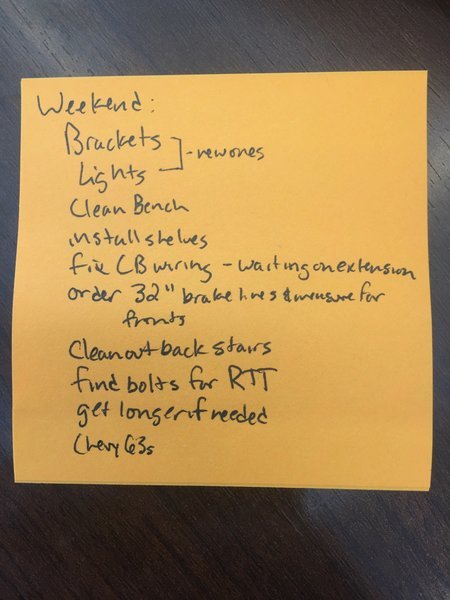 Weekend:
Brackets
- new ones
Lights
Clean Bench
install shelves
fix CB wiring - waiting on extension
order 32" brake lines & measure for
fronts
Clean out back stairs
find bolts for RTT
get longer if needed
Chevy 63s